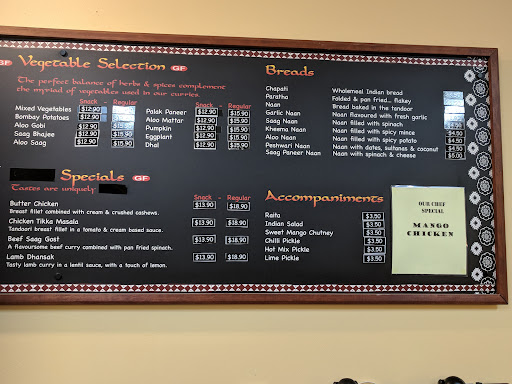 GF Vegetable Selection GF
The perfect balance of herbs & spices complement
the myriad of vegetables used in our curries.
Snack - Regular
Mixed Vegetables $12.90
Bombay Potatoes $12.90
Aloo Gobi $12.90 $15.90
Saag Bhajee $12.90 $15.90
Aloo Saag $12.90 $15.90
Snack - Regular
Palak Paneer $12.90 $15.90
Aloo Mattar $12.90 $15.90
Pumpkin $12.90 $15.90
Eggplant $12.90 $15.90
Dhal $12.90 $15.90
Specials GF
Tastes are uniquely
Snack - Regular
Butter Chicken $13.90 $18.90
Breast fillet combined with cream & crushed cashews.
Chicken Tikka Masala $13.90 $18.90
Tandoori breast fillet in a tomato & cream based sauce.
Beef Saag Gost $13.90 $18.90
A flavoursome beef curry combined with pan fried spinach.
Lamb Dhansak $13.90 $18.90
Tasty lamb curry in a lentil sauce, with a touch of lemon.
Breads
Chapati Wholemeal Indian bread
Paratha Folded & pan fried... flakey
Naan Bread baked in the tandoor
Garlic Naan Naan flavoured with fresh garlic
Saag Naan Naan filled with spinach
Kheema Naan Naan filled with spicy mince $4.50
Aloo Naan Naan filled with spicy potato $4.50
Peshwari Naan Naan with dates, sultanas & coconut $4.50
Saag Paneer Naan Naan with spinach & cheese $5.00
Accompaniments
Raita $3.50
Indian Salad $3.50
Sweet Mango Chutney $3.50
Chilli Pickle $3.50
Hot Mix Pickle $3.50
Lime Pickle $3.50
OUR CHEF
SPECIAL
MANGO
CHICKEN